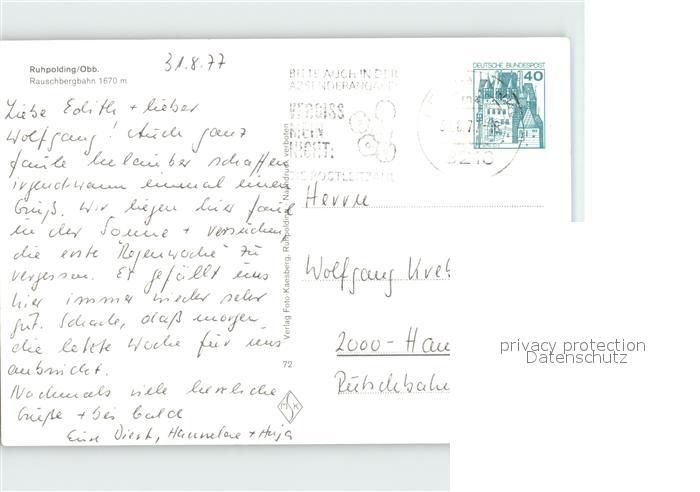 Ruhpolding/Obb.
Rauschbergbahn 1670 m
31.8.77
Liebe Edith + lieber
Wolfgang! Auch ganz
faule Urlauber schaffen
irgendwann einmal einen
Gruß. Wir liegen hier faul
in der Sonne + versuchen,
die erste "Regenwoche" zu
vergessen. Es gefällt uns
hier immer wieder sehr
gut. Schade, daß morgen
die letzte Woche für uns
anbricht.
Nochmals viele herzliche
Grüße + bis bald
Eure Dierk, Hannelore + Anja
Verlag Foto Kaesberg, Ruhpolding · Nachdruck verboten
72
BITTE AUCH IN DER
ABSENDERANGABE
VERGISS
MEIN
NICHT:
DIE POSTLEITZAHL
DEUTSCHE BUNDESPOST
40
Herrn
Wolfgang
2000-
privacy protection
Datenschutz